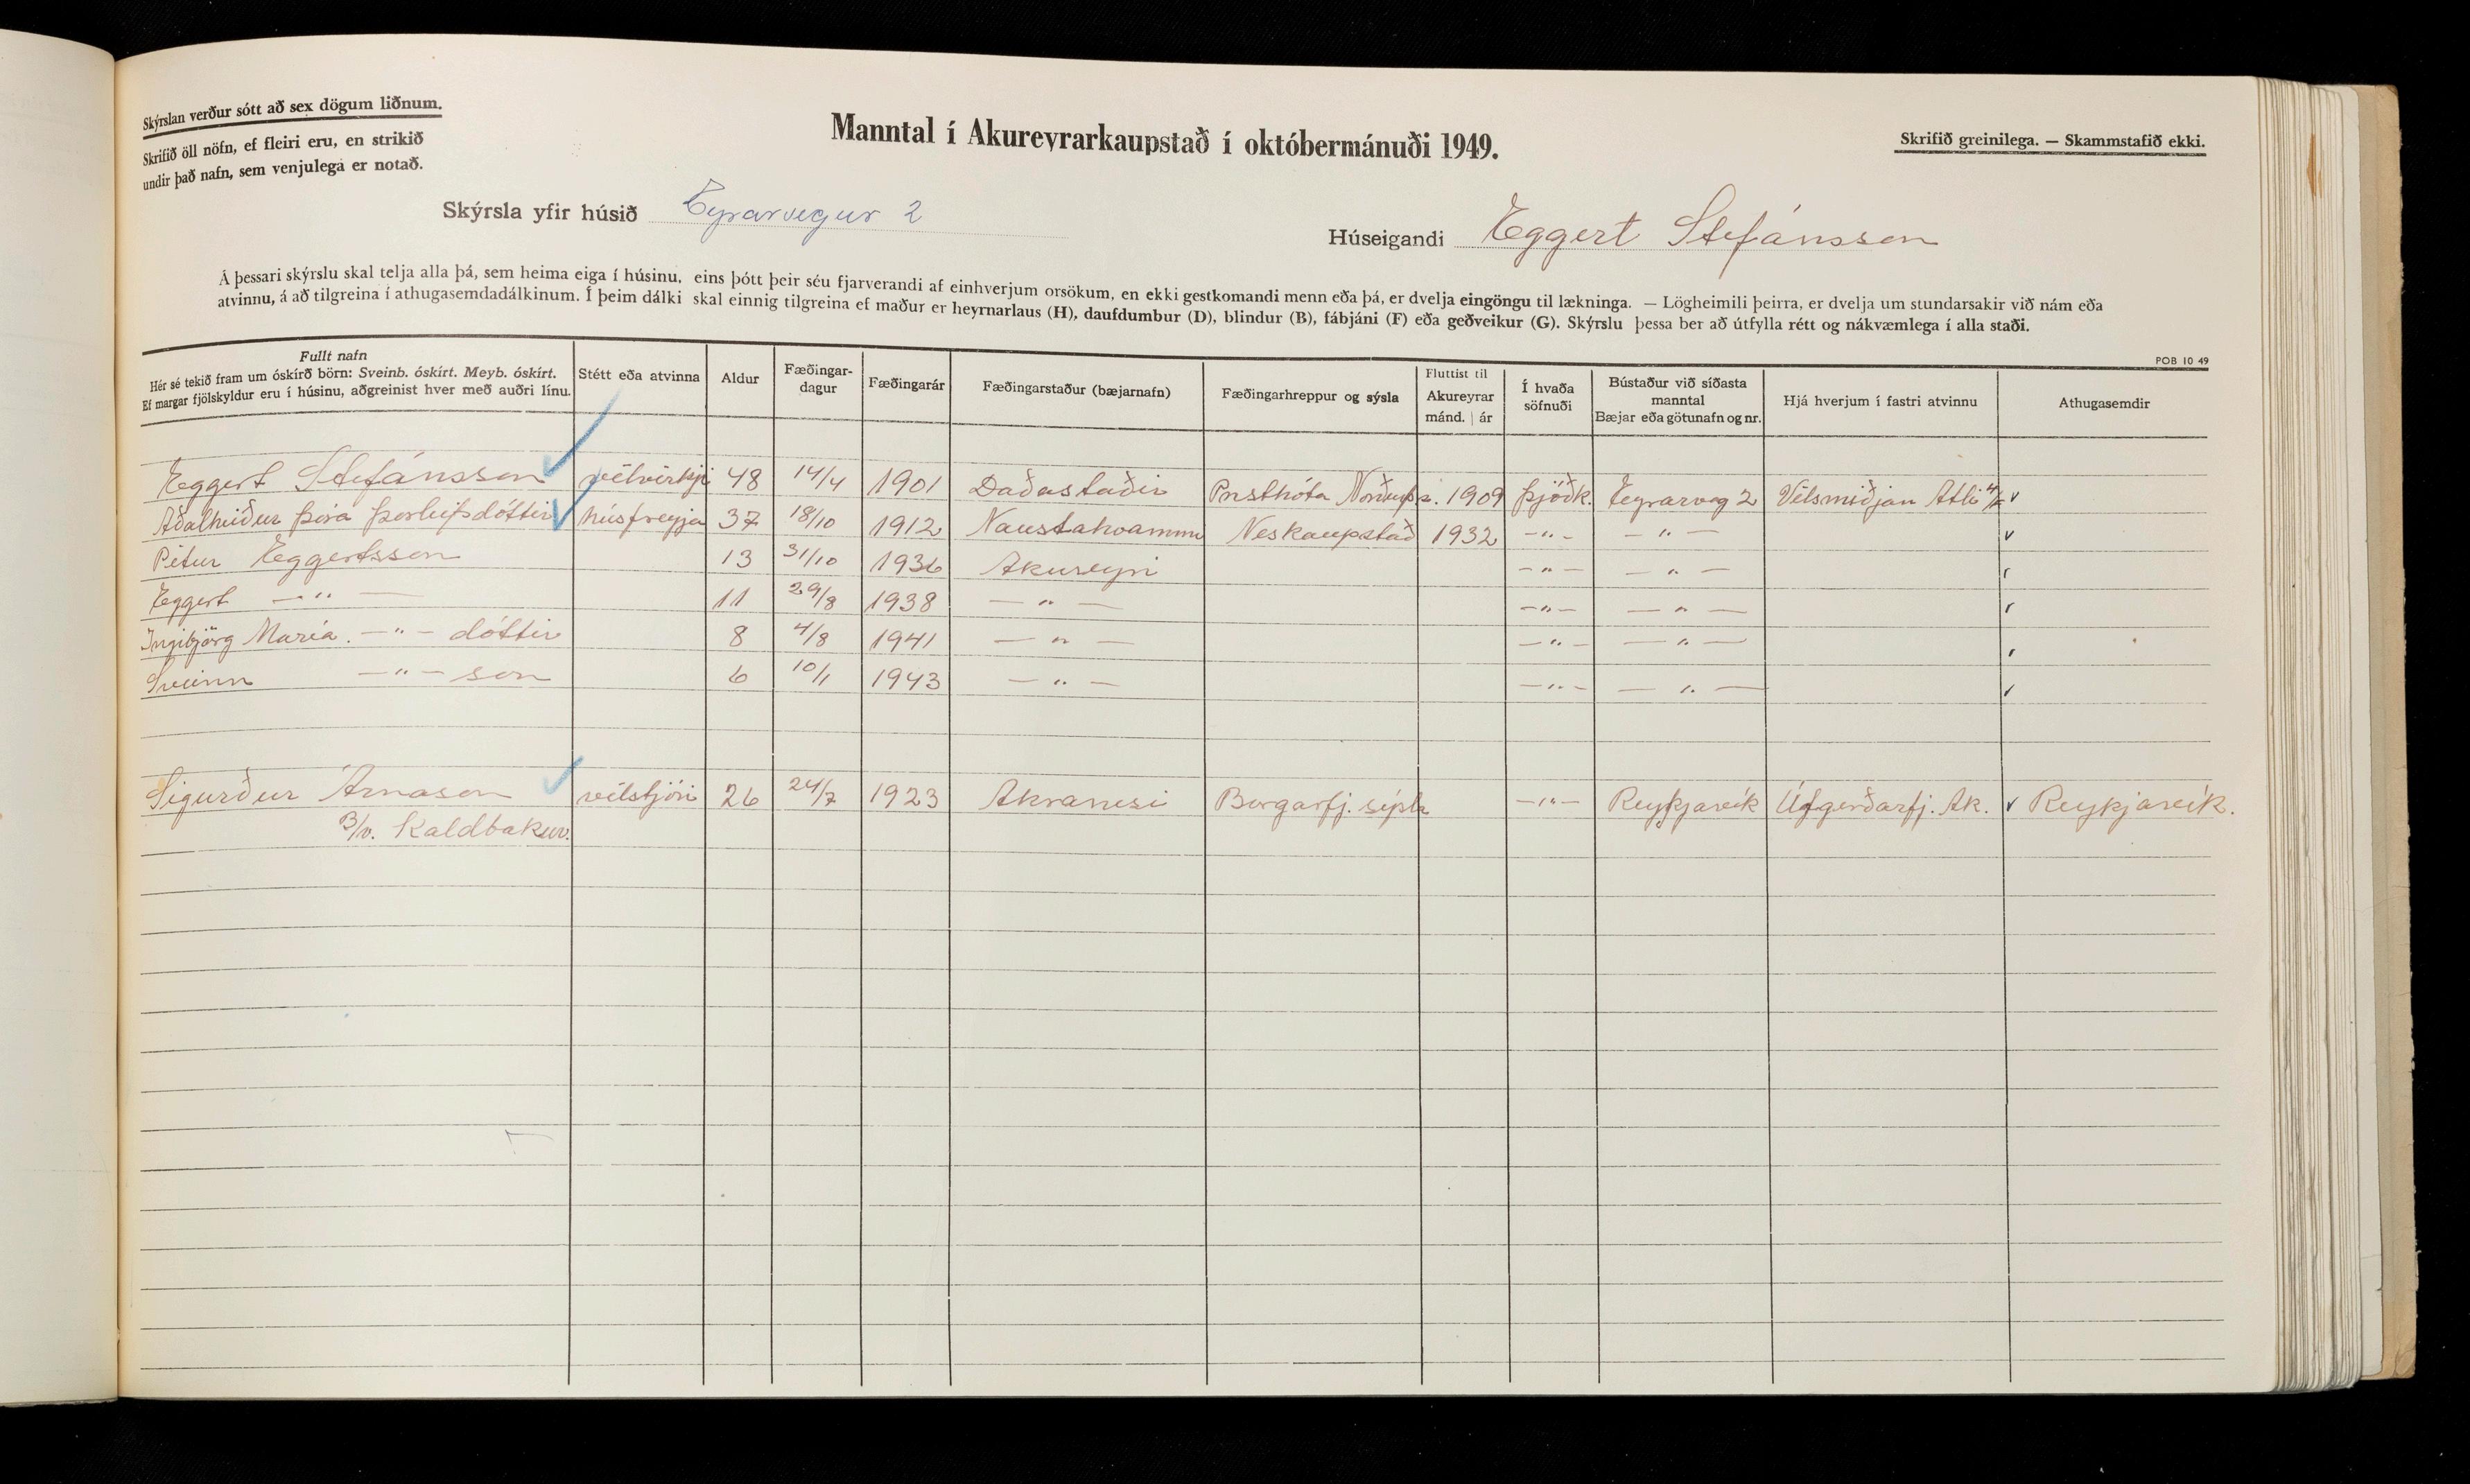 Skýrslan verður sótt að sex dögum liðnum.
Skrifið öll nöfn, ef fleiri eru, en strikið
undir það nafn, sem venjulega er notað.
Manntal í Akureyrarkaupstað í októbermánuði 1949.
Skrifið greinilega. — Skammstafið ekki.
Skýrsla yfir húsið Eyrarvegur 2
Húseigandi Eggert Stefánsson
Á þessari skýrslu skal telja alla þá, sem heima eiga í húsinu, eins þótt þeir séu fjarverandi af einhverjum orsökum, en ekki gestkomandi menn eða þá, er dvelja eingöngu til lækninga. — Lögheimili þeirra, er dvelja um stundarsakir við nám eða
atvinnu, á að tilgreina í athugasemdadálkinum. Í þeim dálki skal einnig tilgreina ef maður er heyrnarlaus (H), daufdumbur (D), blindur (B), fábjáni (F) eða geðveikur (G). Skýrslu þessa ber að útfylla rétt og nákvæmlega í alla staði.
POB 10 49
Fullt nafn
Hér sé tekið fram um óskírð börn: Sveinb. óskírt. Meyb. óskírt.
Ef margar fjölskyldur eru í húsinu, aðgreinist hver með auðri línu.
Stétt eða atvinna
Aldur
Fæðingar-
dagur
Fæðingarár
Fæðingarstaður (bæjarnafn)
Fæðingarhreppur og sýsla
Fluttist til
Akureyrar
mánd. | ár
Í hvaða
söfnuði
Bústaður við síðasta
manntal
Bæjar eða götunafn og nr.
Hjá hverjum í fastri atvinnu
Athugasemdir
Eggert Stefánsson vélvirkji 48 14/4 1901 Daðastaðir 1909 þjóðk. Eyrarveg 2 Vélsmiðjan Atli h/f v
Aðalheiður Þóra Þorleifsdóttir húsfreyja 37 18/10 1912 Naustahvammi Neskaupstað 1932 —"— —"— v
Pétur Eggertsson 13 31/10 1936 Akureyri —"— —"—
Eggert —"— 11 29/8 1938 —"— —"— —"—
Ingibjörg María —"— dóttir 8 4/8 1941 —"— —"— —"—
Sveinn —"— son 6 10/1 1943 —"— —"— —"—
Sigurður Árnason vélstjóri 26 24/7 1923 Akranesi Borgarfj. sýsla —"— Reykjavík Útgerðarfj. Ak. v Reykjavík.
B/v. Kaldbakur.